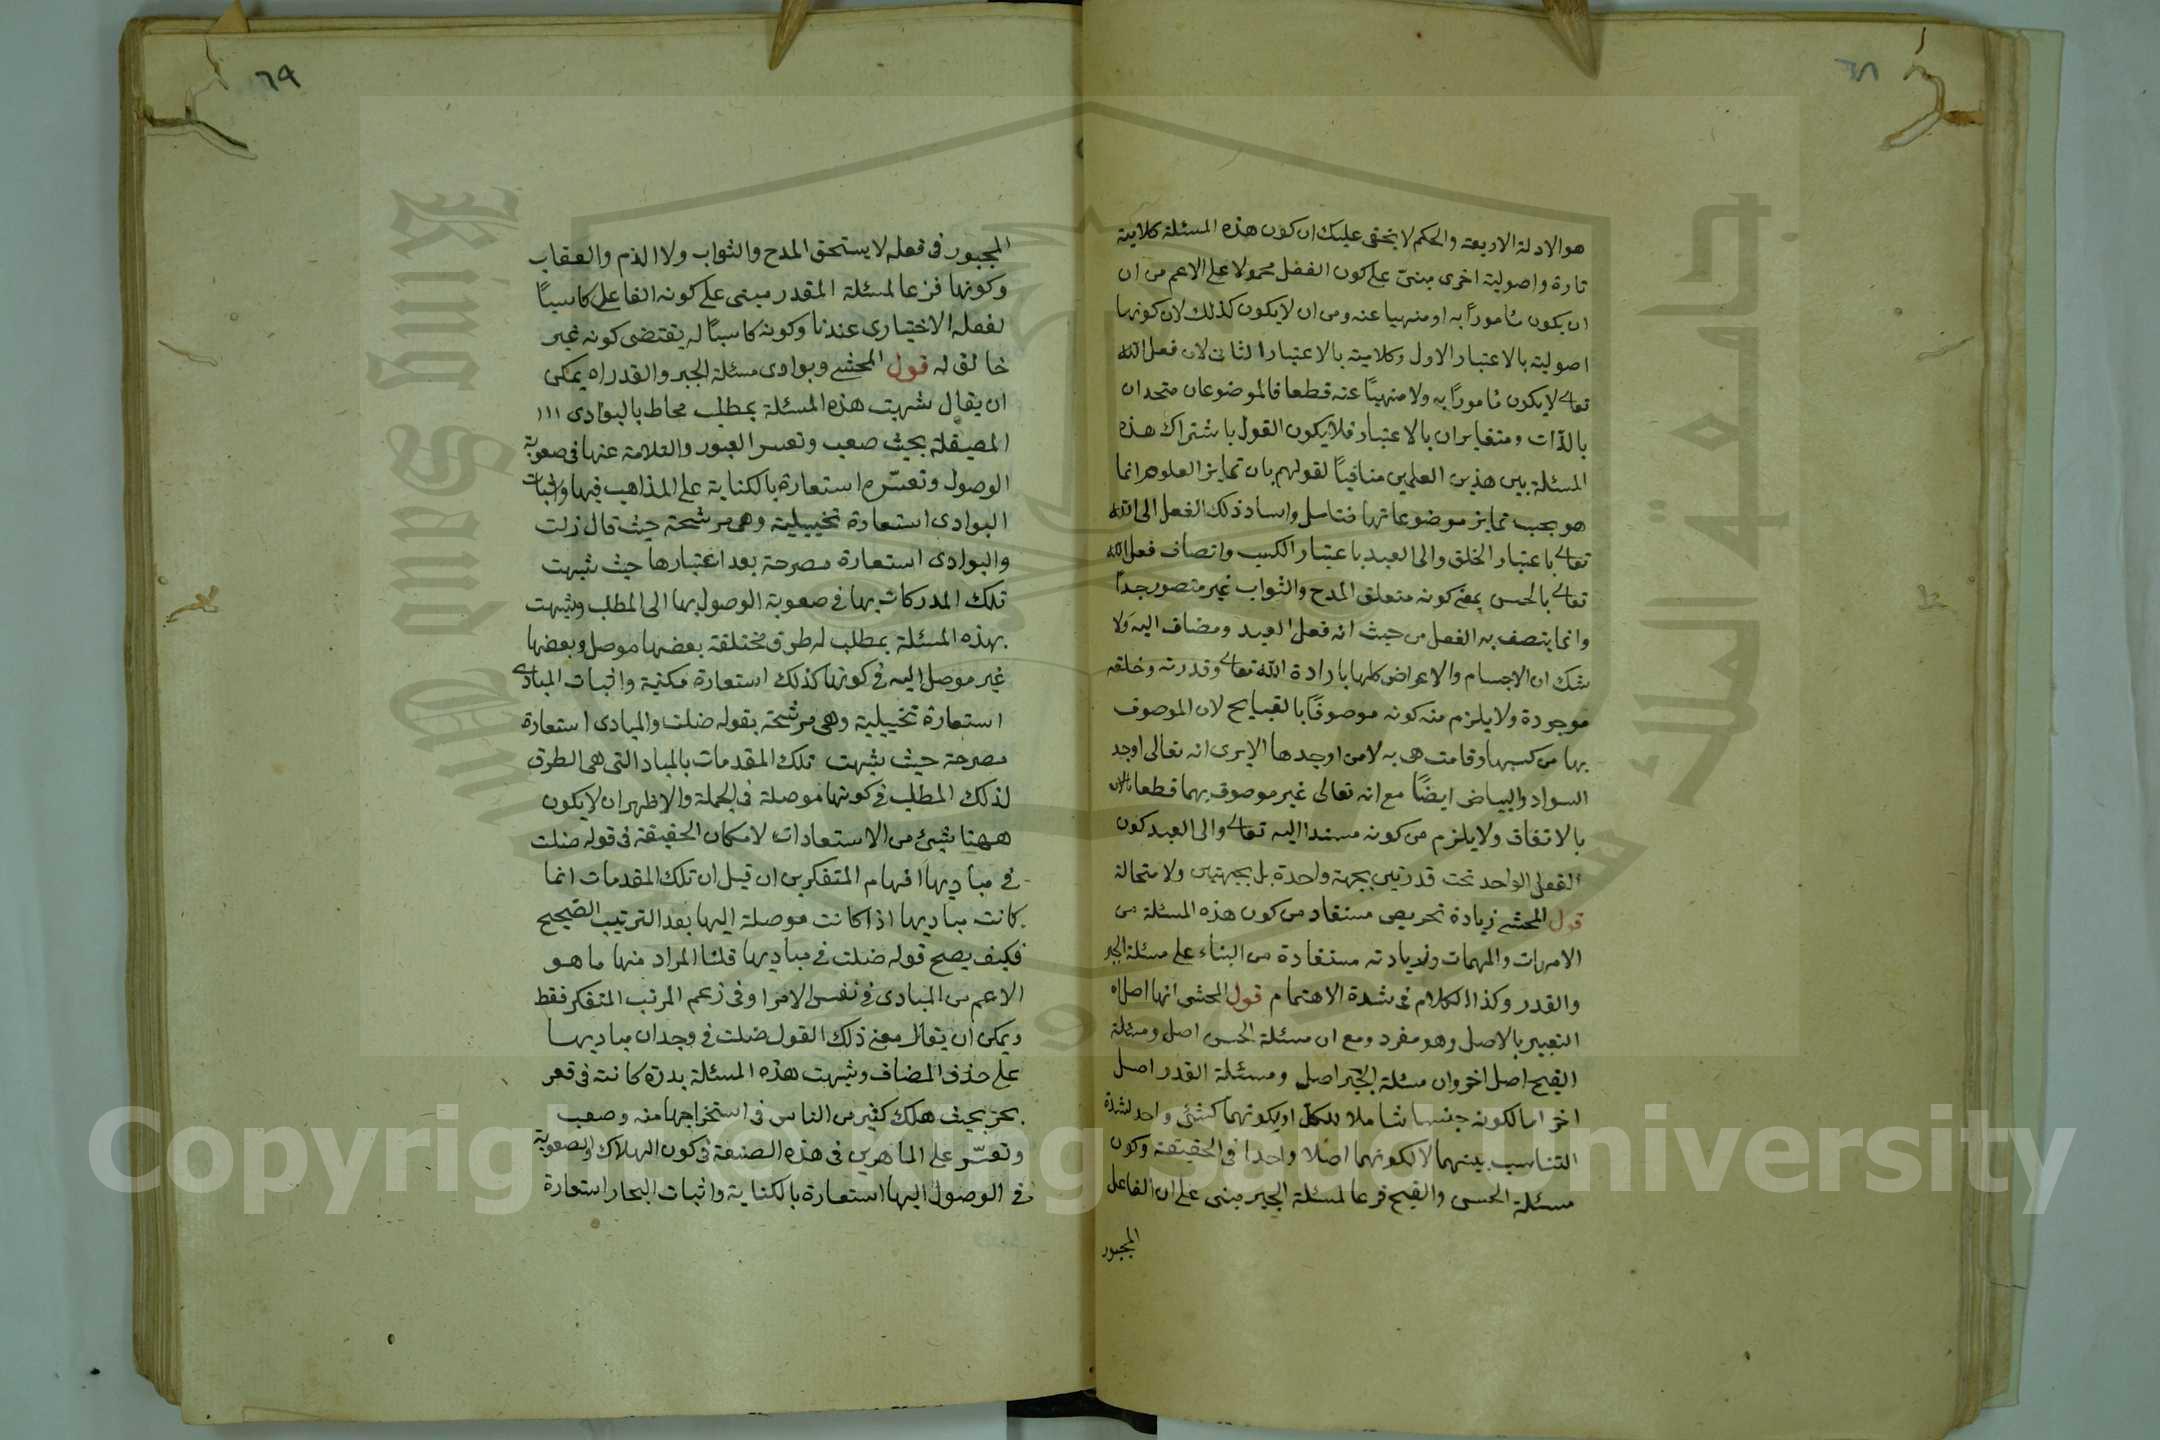 ٦٨
هو الادلة الاربعة والحكم لا يخفى عليك ان كون هذه المسئلة كلامية
تارة واصولية اخرى مبنى على كون الفعل محمولا على الاعم من ان
ان يكون مأمورا به او منهيا عنه ومن ان لا يكون كذلك لان كونها
اصولية بالاعتبار الاول وكلامية بالاعتبار الثانى لان فعل الله
تعالى لا يكون مأمورا به ولا منهيا عنه قطعا فالموضوعان متحدان
بالذات ومتغايران بالاعتبار فلا يكون القول باشتراك هذه
المسئلة بين هذين العلمين منافيا لقولهم بان تمايز العلوم انما
هو بحسب تمايز موضوعاتها فتأمل واسناد ذلك الفعل الى الله
تعالى باعتبار الخلق والى العبد باعتبار الكسب واتصاف فعل الله
تعالى بالحسن بمعنى كونه متعلق المدح والثواب غير متصور جدا
وانما يتصف به الفعل من حيث انه فعل العبد ومضاف اليه ولا
شك ان الاجسام والاعراض كلها بارادة الله تعالى وقدرته وخلقه
موجودة ولا يلزم منه كونه موصوفا بالقبايح لان الموصوف
بها من كسبها وقامت هى به لا من اوجدها الا يرى انه تعالى اوجد
السواد والبياض ايضا مع انه تعالى غير موصوف بهما قطعا
بالاتفاق ولا يلزم من كونه مسندا اليه تعالى والى العبد كون
الفعل الواحد تحت قدرتين بجهة واحدة بل بجهتين ولا متحالة
قول المحشى زيادة تحريص مستفاد من كون هذه المسئلة من
الامهات والمهمات وزيادته مستفادة من البناء على مسئلة الجبر
والقدر وكذا الكلام فى شدة الاهتمام قول المحشى انها اصل اه
التعبير بالاصل وهو مفرد ومع ان مسئلة الحسن اصل ومسئلة
القبح اصل اخر وان مسئلة الجبر اصل ومسئلة القدر اصل
اخر اما لكونه جنسا شاملا للكل او بكونهما كشئ واحد لشدة
التناسب بينهما لا لكونهما اصلا واحدا فى الحقيقة وكون
مسئلة الحسن والقبح فرعا لمسئلة الجبر مبنى على ان الفاعل
المجبور
٦٩
المجبور فى فعله لا يستحق المدح والثواب ولا الذم والعقاب
وكونها فرعا لمسئلة المقدر مبنى على كونه الفاعل كاسبا
لفعله الاختيارى عندنا وكونه كاسبا له يقتضى كونه غير
خالق له قول المحشى وبوادى مسئلة الجبر والقدر اه يمكن
ان يقال شبهت هذه المسئلة بمطلب محاط بالبوادى ااا
المصيقلة بحيث صعب وتعسر العبور والسلامة عنها فى صعوبة
الوصول وتعسره استعارة بالكناية على المذاهب فيها واثبات
البوادى استعارة تخييلية وهى مرشحة حيث قال زلت
والبوادى استعارة مصرحة بعد اعتبارها حيث شبهت
تلك المدركات بها فى صعوبة الوصول بها الى المطلب وشبهت
بهذه المسئلة بمطلب له طرق مختلفة بعضها موصل وبعضها
غير موصل اليه فى كونها كذلك استعارة مكنية واثبات المبادى
استعارة تخييلية وهى مرشحة بقوله ضلت والمبادى استعارة
مصرحة حيث شبهت تلك المقدمات بالمباد التى هى الطرق
لذلك المطلب فى كونها موصلة فى الجملة والاظهر ان لا يكون
ههنا شيئ من الاستعادات لامكان الحقيقة فى قوله ضلت
فى مباديها افهام المتفكرين ان قيل ان تلك المقدمات انما
كانت مباديها اذا كانت موصلة اليها بعد الترتيب الصحيح
فكيف يصح قوله ضلت فى مباديها قلنا المراد منها ما هو
الاعم من المبادى فى نفس الامر او فى زعم المرتب المتفكر فقط
ويمكن ان يقال معنى ذلك القول ضلت فى وجدان مباديها
على حذف المضاف وشبهت هذه المسئلة بدرة كائنة فى قعر
بحر بحيث هلك كثير من الناس فى استخراجها منه وصعب
وتعسر على الماهرين فى هذه الصنعة فى كون الهلاك والصعوبة
فى الوصول اليها استعارة بالكناية واثبات البحار استعارة
جامعة الملك سعود
King Saud University
1957
Copyright © King Saud University